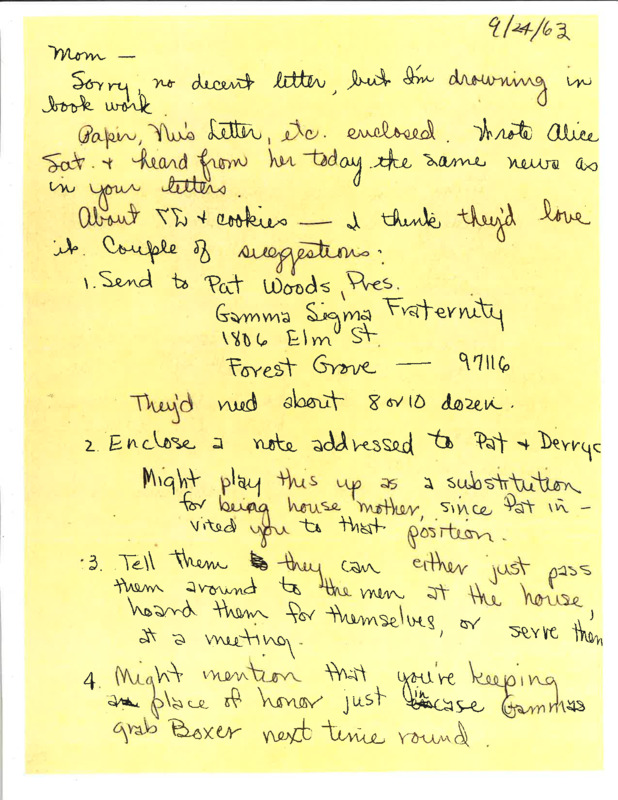 9/24/63
Mom —
Sorry, no decent letter, but I'm drowning in
book work
Paper, Nu's Letter, etc. enclosed. Wrote Alice
Sat. & heard from her today the same news as
in your letters.
About ΓΣ & cookies — I think they'd love
it. Couple of suggestions:
1. Send to Pat Woods, Pres.
Gamma Sigma Fraternity
1806 Elm St.
Forest Grove — 97116
They'd need about 8 or 10 dozen.
2. Enclose a note addressed to Pat & Derryc
Might play this up as a substitution
for being house mother, since Pat in-
vited you to that position.
3. Tell them they can either just pass
them around to the men at the house,
hoard them for themselves, or serve them
at a meeting.
4. Might mention that you're keeping
a place of honor just in case Gammas
grab Boxer next time round.